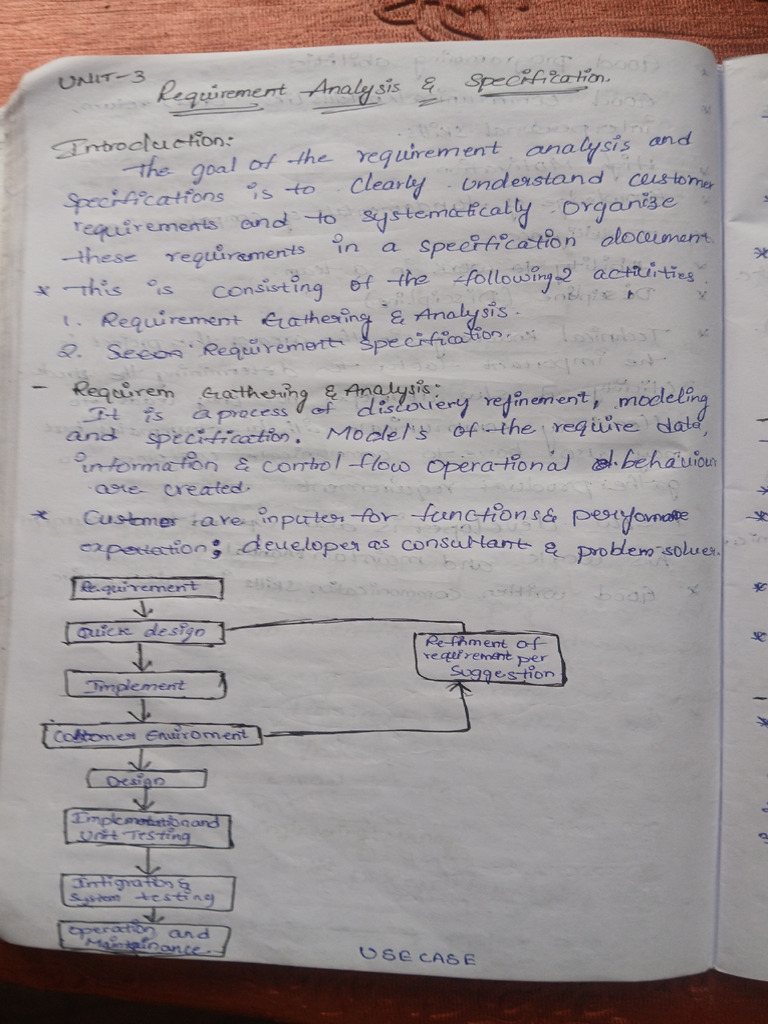 UNIT-3
Requirement Analysis & Specification.
Introduction:
The goal of the requirement analysis and
specifications is to clearly understand customer
requirements and to systematically organize
these requirements in a specification document.
* This is consisting of the following 2 activities.
1. Requirement Gathering & Analysis.
2. Requirement Specification.
- Requirem Gathering & Analysis:
It is a process of discovery refinement, modeling
and specification. Model's of the require data,
information & control flow operational behaviour
are created.
* Customer are inputer for functions &
expertation; developer as consultant & problem-solver.
Requirement
Quick design
Refinment of
requirement per
suggestion
Implement
Customer Enviroment
Design
Implementation and
Unit Testing
Intigration &
System testing
Operation and
Maintainance.
USE CASE